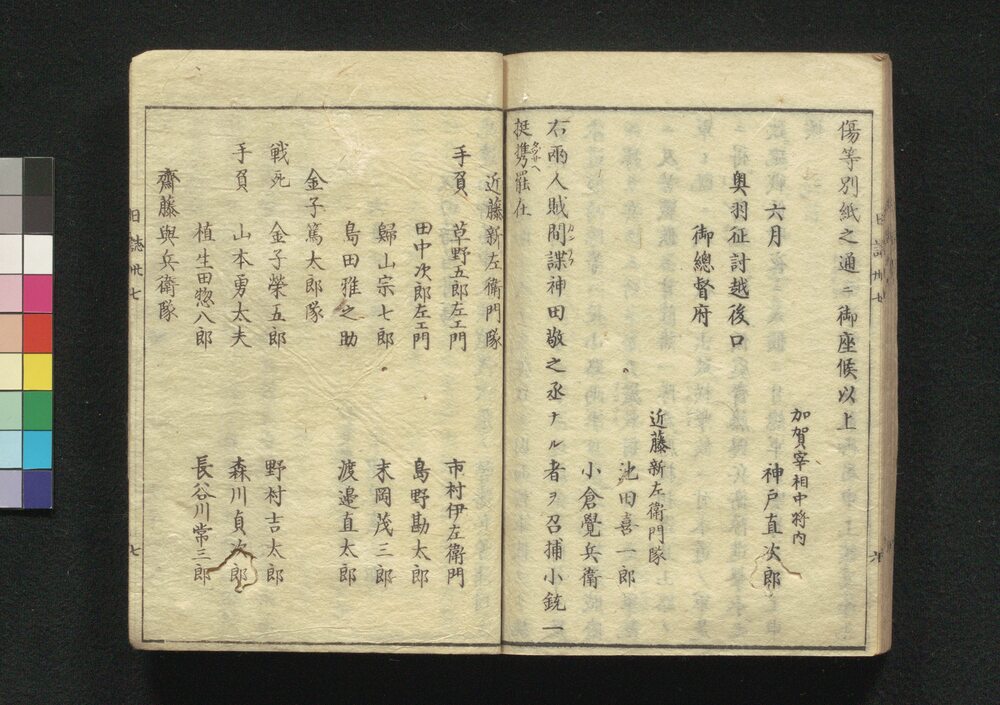 傷等別紙之通ニ御座候以上
加賀宰相中将内
六月
神戸直次郎
奥羽征討越後口
御總督府
近藤新左衛門隊
池田喜一郎
小倉覺兵衛
右兩人賊間諜神田敬之丞ナル者ヲ召捕小銃一
カンテフ
挺携罷在
タツサヘ
近藤新左衛門隊
手負 草野五郎左エ門 市村伊左衛門
田中次郎左エ門 島野勘太郎
歸山宗七郎 末岡茂三郎
島田雅之助 渡邉直太郎
金子篤太郎隊
戦死 金子榮五郎 野村吉太郎
手負 山本勇太夫 森川貞次郎
植生田惣八郎 長谷川常三郎
齋藤與兵衛隊
日誌卅七
七